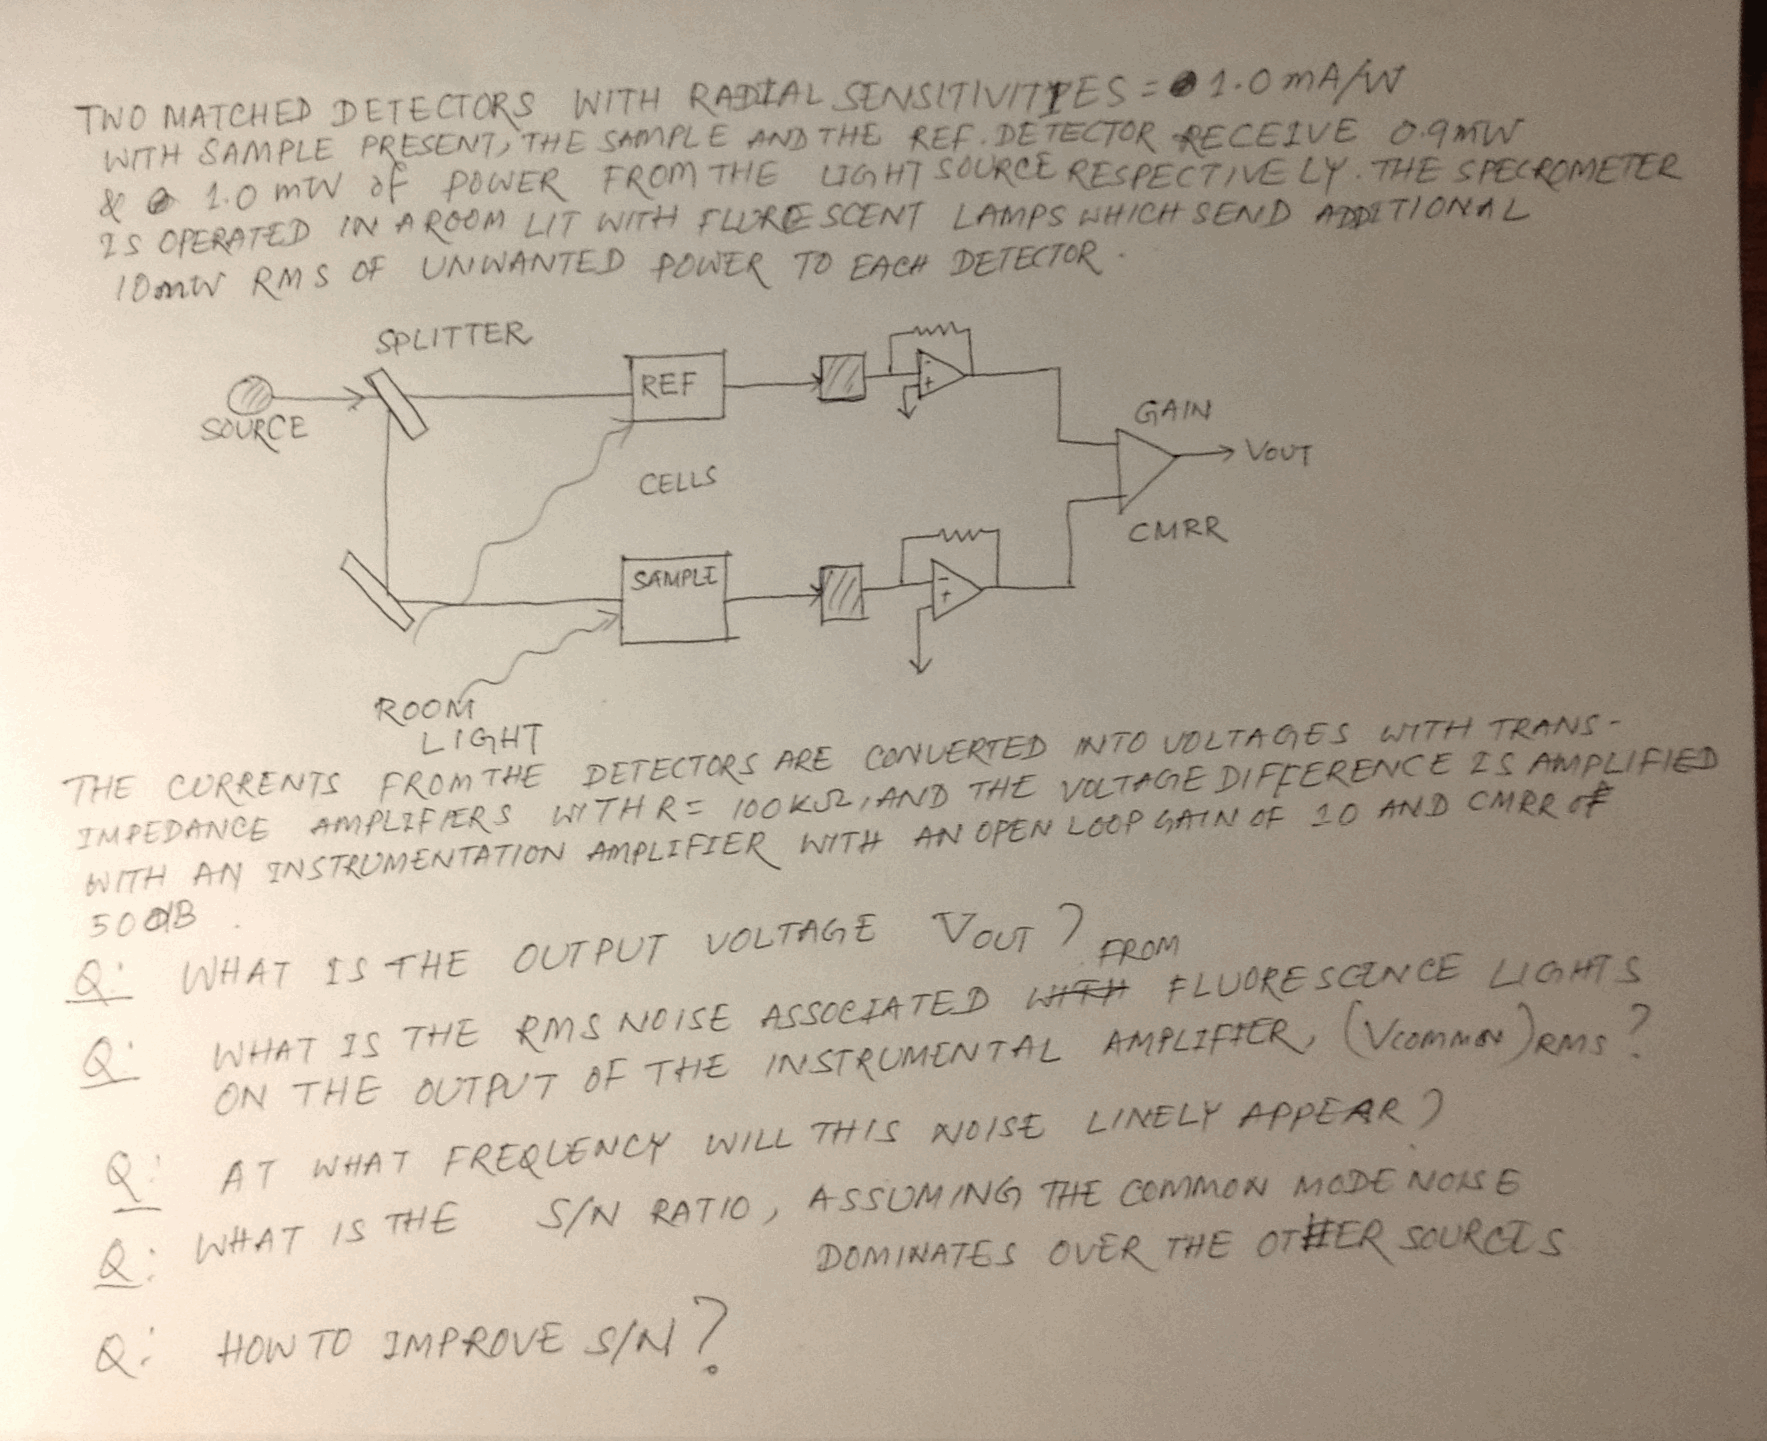 TWO MATCHED DETECTORS WITH RADIAL SENSITIVITIES = 1.0 mA/W
WITH SAMPLE PRESENT, THE SAMPLE AND THE REF. DETECTOR RECEIVE 0.9 mW
& 1.0 mW of POWER FROM THE LIGHT SOURCE RESPECTIVELY. THE SPECROMETER
IS OPERATED IN A ROOM LIT WITH FLURESCENT LAMPS WHICH SEND ADDITIONAL
10mW RMS OF UNWANTED POWER TO EACH DETECTOR.
SPLITTER
SOURCE
REF
GAIN
VOUT
CELLS
CMRR
SAMPLE
ROOM
LIGHT
THE CURRENTS FROM THE DETECTORS ARE CONVERTED INTO VOLTAGES WITH TRANS-
IMPEDANCE AMPLIFIERS WITH R = 100KΩ, AND THE VOLTAGE DIFFERENCE IS AMPLIFIED
WITH AN INSTRUMENTATION AMPLIFIER WITH AN OPEN LOOP GAIN OF 10 AND CMRR of
50 dB.
Q: WHAT IS THE OUTPUT VOLTAGE VOUT?
Q: WHAT IS THE RMS NOISE ASSOCIATED WITH FROM FLUORESCENCE LIGHTS
ON THE OUTPUT OF THE INSTRUMENTAL AMPLIFIER, (Vcommon)RMS?
Q: AT WHAT FREQUENCY WILL THIS NOISE LINELY APPEAR?
Q: WHAT IS THE S/N RATIO, ASSUMING THE COMMON MODE NOISE
DOMINATES OVER THE OTHER SOURCES
Q: HOW TO IMPROVE S/N?